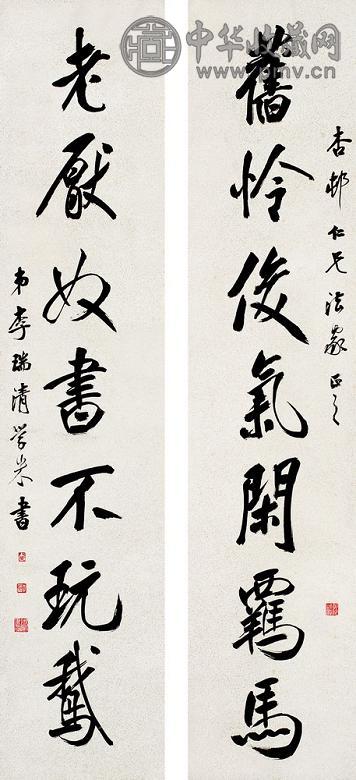 中华收藏网
www.pmv.cn
杏邨仁兄法家正之
舊怜俊氣閑羈馬
老厭奴書不玩鵞
弟李瑞清學米書